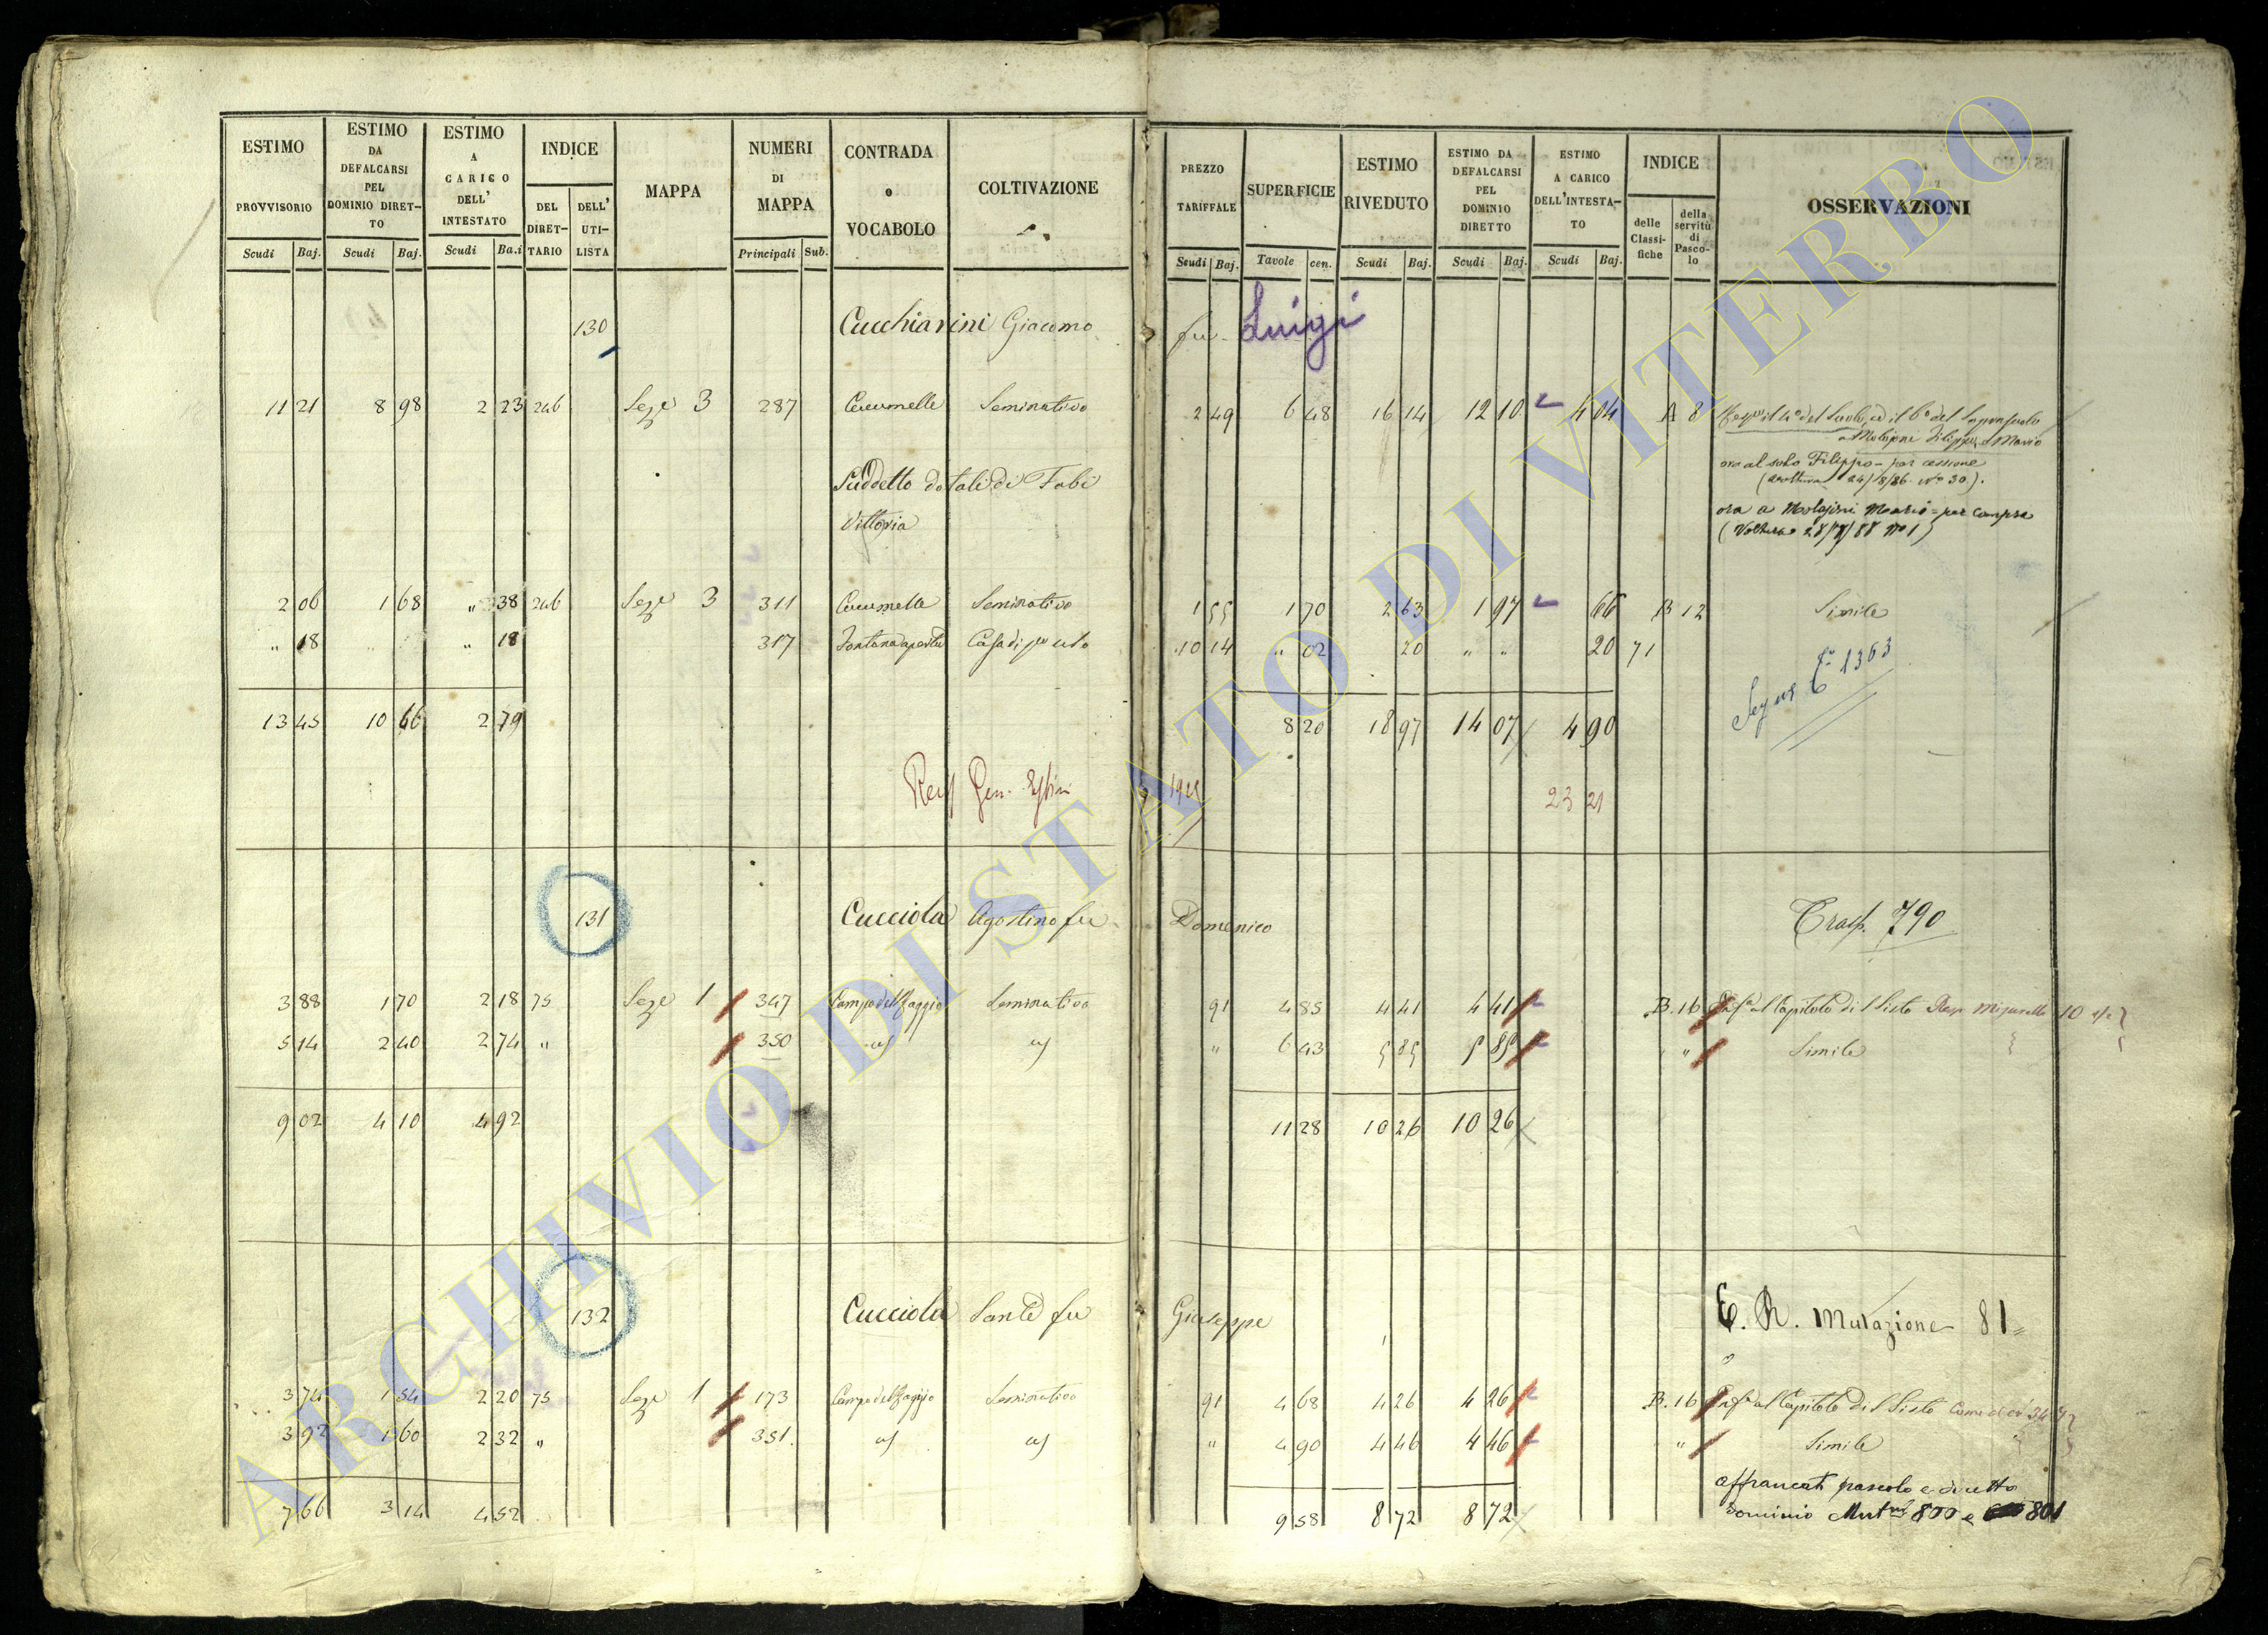 ESTIMO PROVVISORIO Scudi Baj.
ESTIMO DA DEFALCARSI PEL DOMINIO DIRETTO Scudi Baj.
ESTIMO A CARICO DELL' INTESTATO Scudi Ba.i
INDICE DEL DIRETTARIO DELL' UTILISTA
MAPPA
NUMERI DI MAPPA Principali Sub.
CONTRADA o VOCABOLO
COLTIVAZIONE
PREZZO TARIFFALE Scudi Baj.
SUPERFICIE Tavole cen.
ESTIMO RIVEDUTO Scudi Baj.
ESTIMO DA DEFALCARSI PEL DOMINIO DIRETTO Scudi Baj.
ESTIMO A CARICO DELL'INTESTATO Scudi Baj.
INDICE delle Classifiche della servitù di Pascolo
OSSERVAZIONI
130 Cucchiarini Giacomo fu Luigi
11 21 8 98 2 23 246 Sez.e 3 287 Cucumelle Seminativo 2 49 6 48 16 14 12 10 4 04 A 8
ora al solo Filippo - per cessione
(voltura 24/8/86 No 30).
Suddetto dotali di Fabi
Vittoria
ora a Molajoni Mario = per Compra
2 06 1 68 " 38 246 Sez.e 3 311 Cucumelle Seminativo 1 55 1 70 2 63 1 97 66 B 12 Simile
" 18 " " 18 317 Casa di 10 14 " 02 20 " " 20 71
Segue 1363
13 45 10 66 2 79 8 20 18 97 14 07 4 90
23 21
131 Cucciola Agostino fu Domenico Trasp. 790
3 88 1 70 2 18 75 Sez.e 1 347 Seminativo 91 4 85 4 41 4 41 B. 16 al Capitolo di S Sisto
5 14 2 40 2 74 " 350 " 6 43 5 85 5 85 " Simile
9 02 4 10 4 92 11 28 10 26 10 26
132 Cucciola Sante fu Giuseppe E. R. Mutazione 81
3 74 1 54 2 20 75 Sez.e 1 173 Seminativo 91 4 68 4 26 4 26 B. 16 al Capitolo di S Sisto
3 92 1 60 2 32 " 351. " 4 90 4 46 4 46 " Simile
affrancati pascolo e diretto
7 66 3 14 4 52 9 58 8 72 8 72 dominio Mut.ni 800 e 801
ARCHIVIO DI STATO DI VITERBO